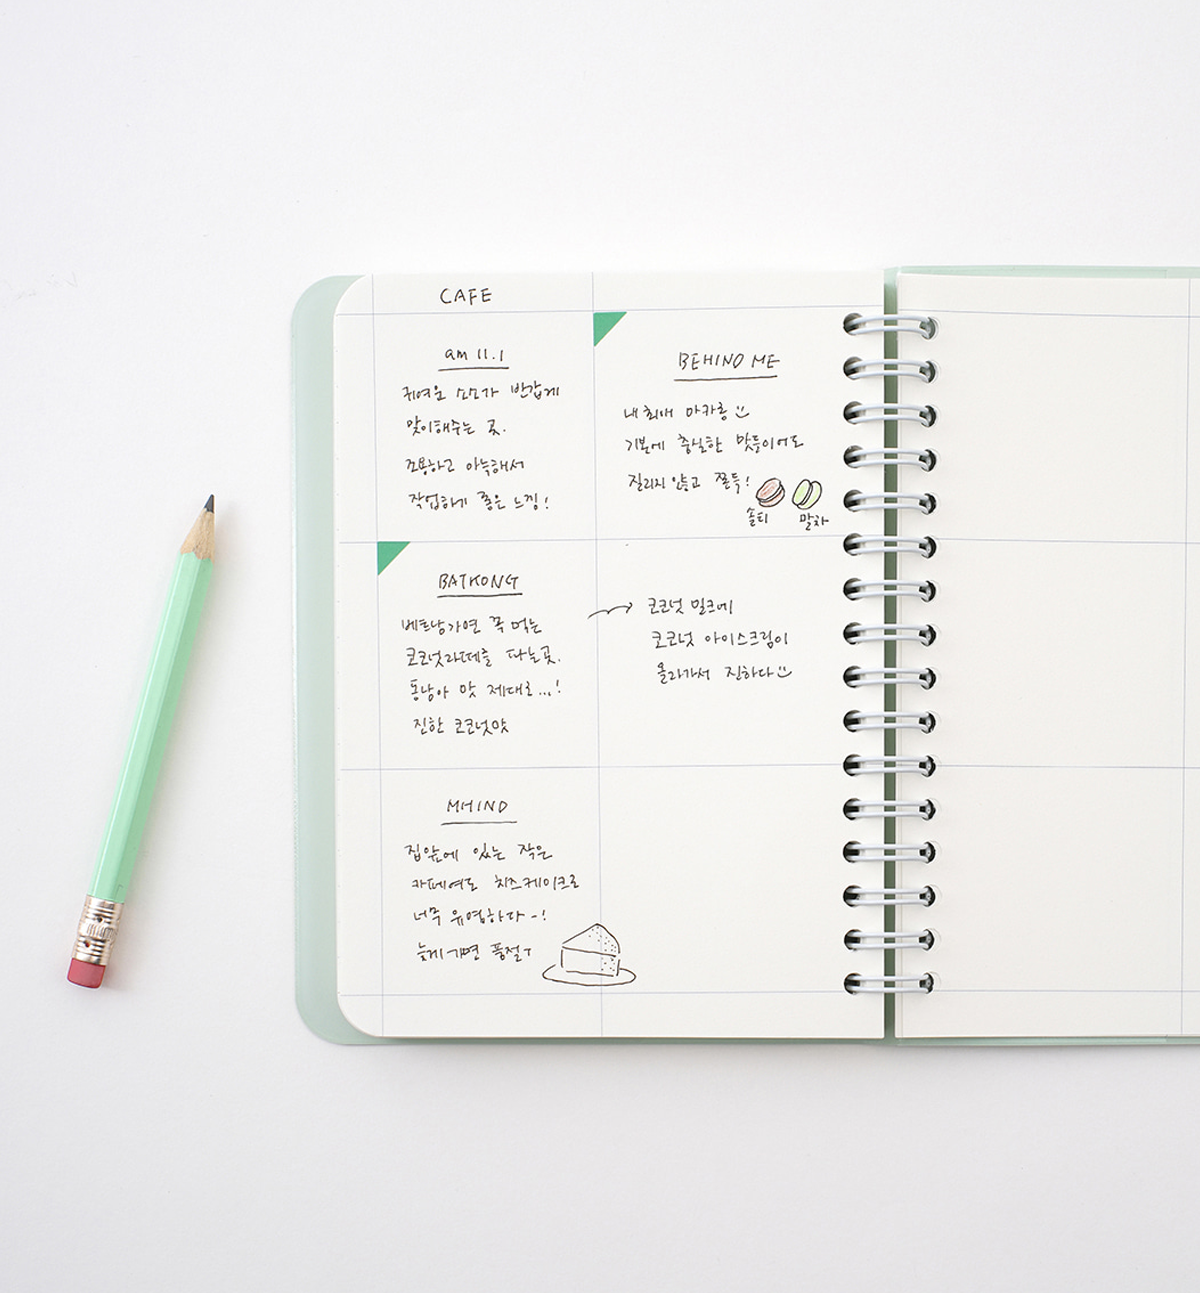 CAFE
am 11.1
귀여운 소소가 반갑게
맞이해주는 곳.
조용하고 아늑해서
작업하기 좋은 느낌!
BEHIND ME
내 최애 마카롱
기본에 충실한 맛들이어도
질리지 않고 쫀득!
솔티 말차
BATKONG
베트남가면 꼭 먹는
코코넛라떼를 파는곳.
동남아 맛 제대로...!
진한 코코넛맛
코코넛 밀크에
코코넛 아이스크림이
올라가서 진하다
MHIND
집앞에 있는 작은
카페여도 치즈케이크로
너무 유명하다~!
늦게가면 품절ㅜ